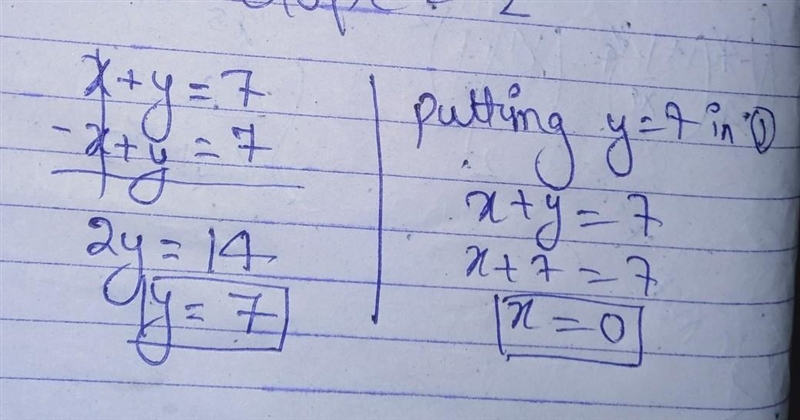 x+y=7
-x+y=7
2y=14
y=7
putting y=7 in ①
x+y=7
x+7=7
x=0